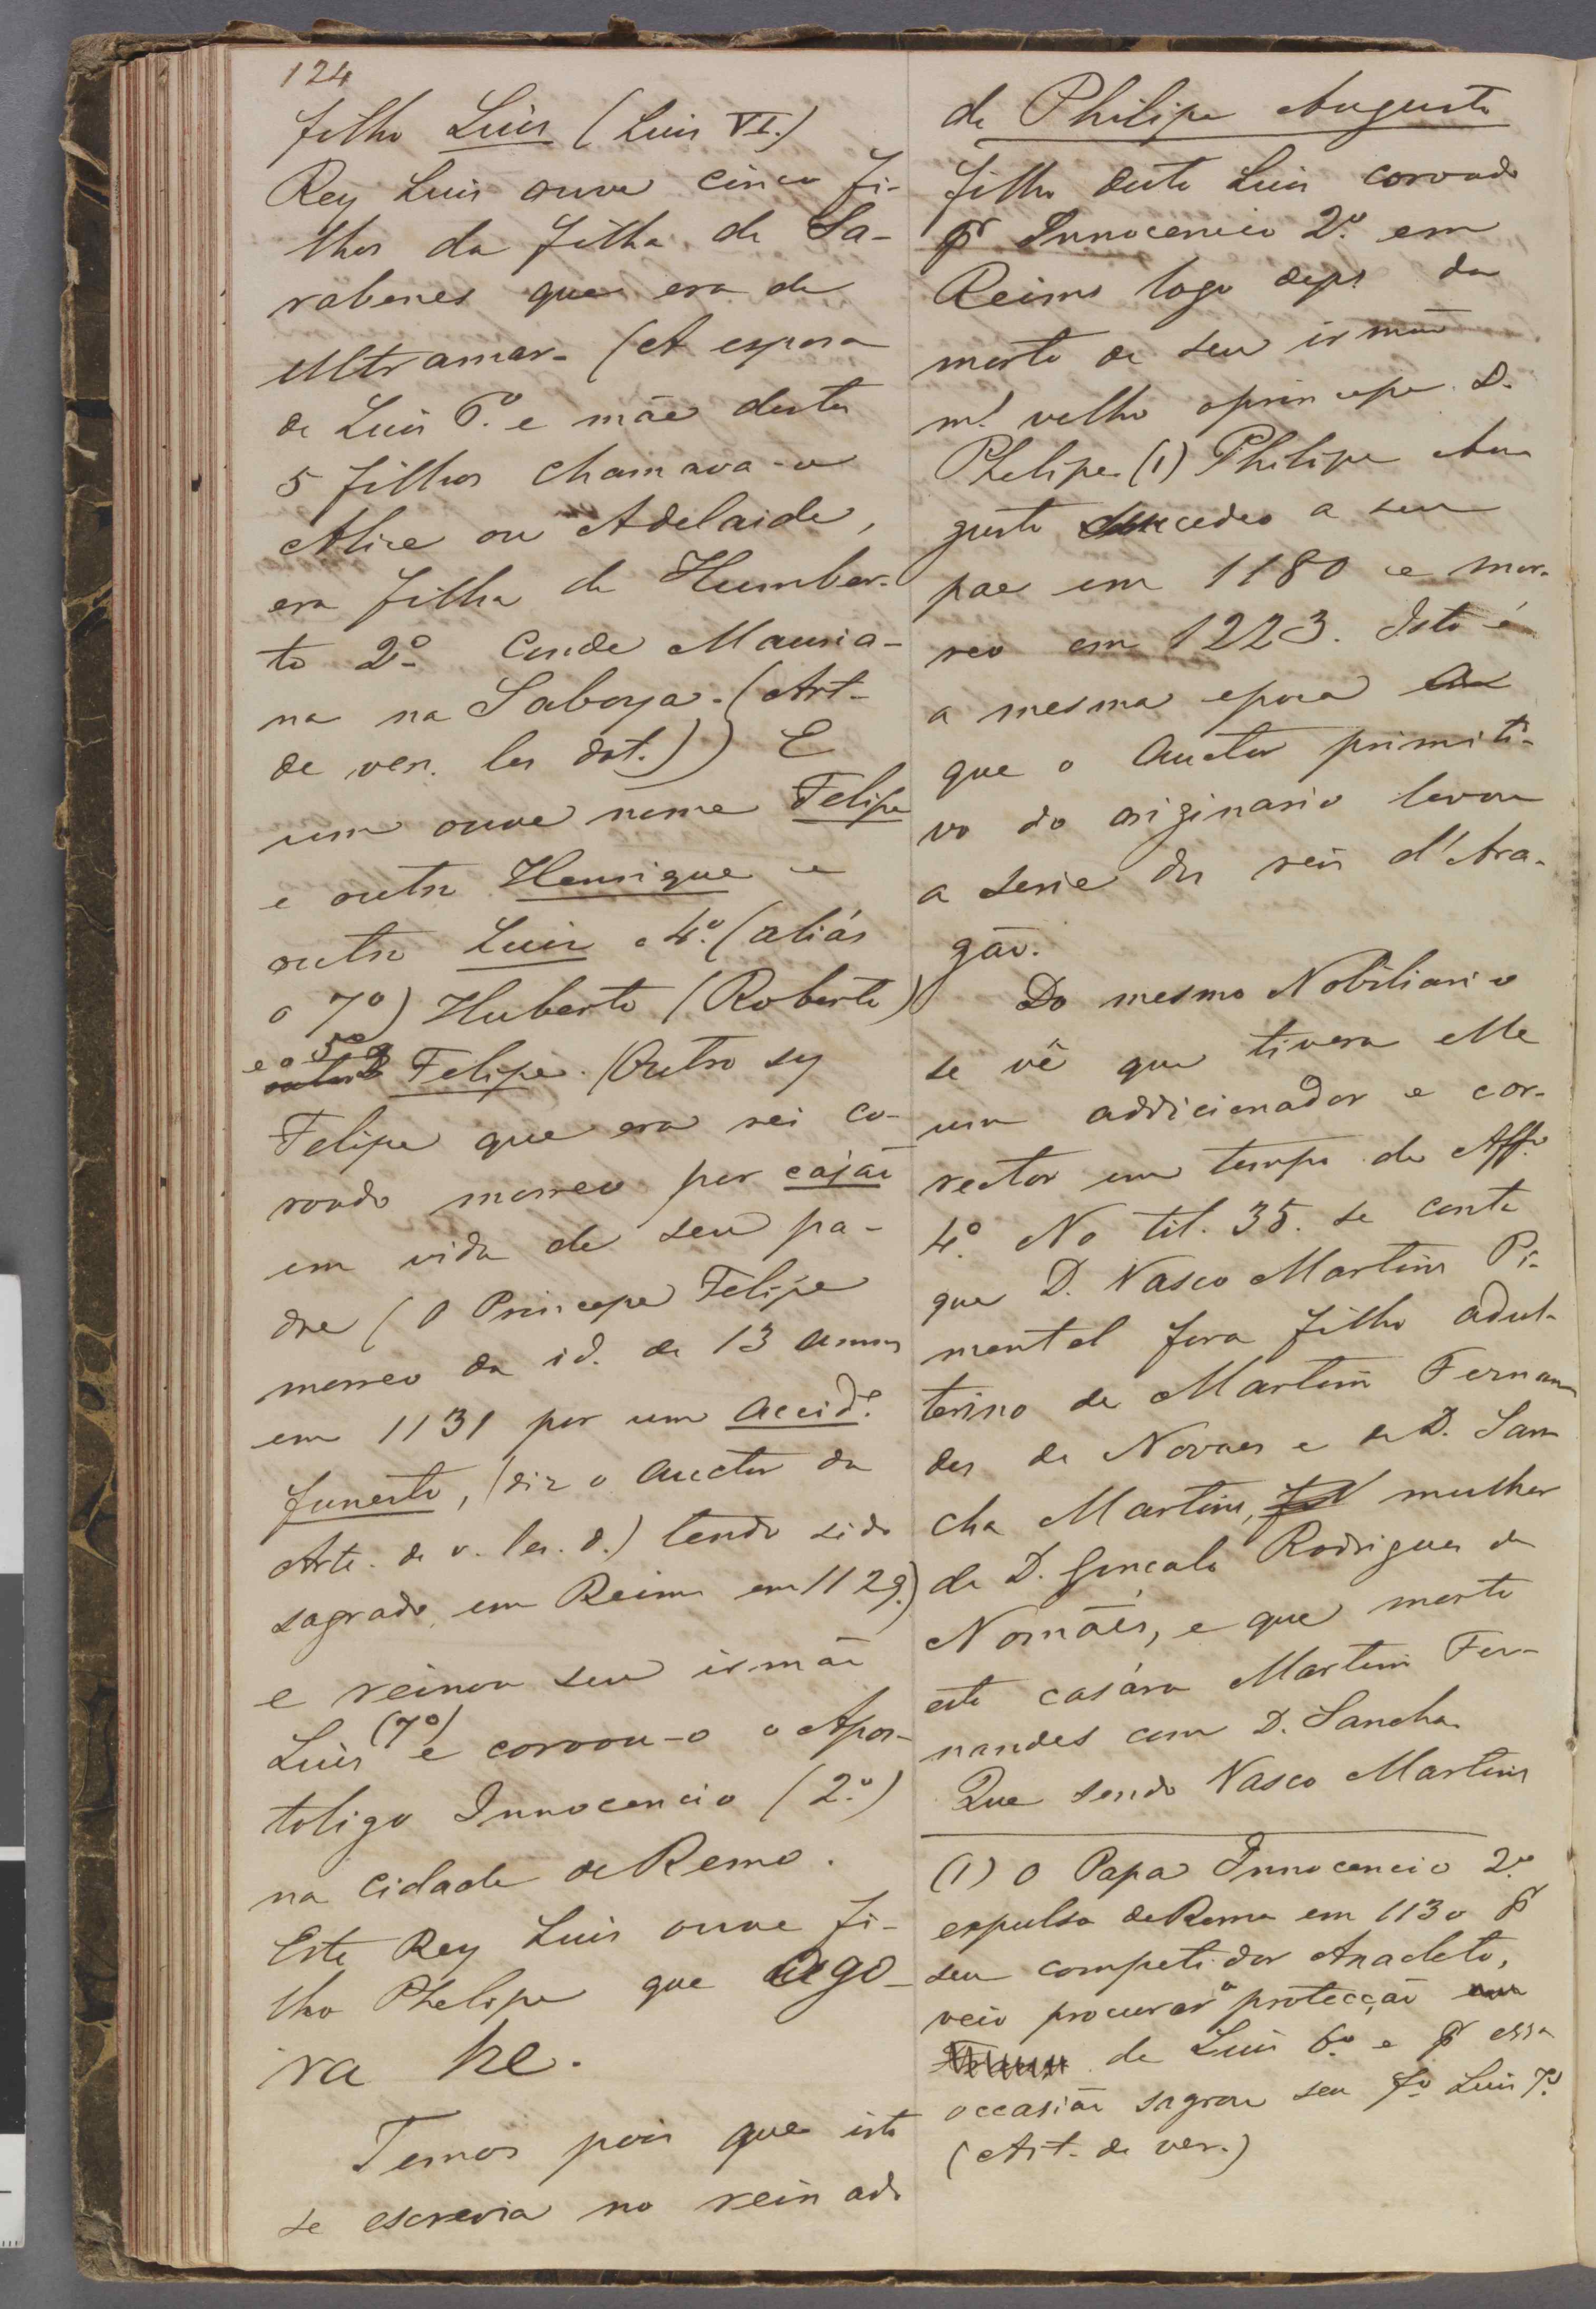 124
filho Luis (Luis VI.)
Rey Luis ouve cinco fi-
lhos da filha de Sa-
rabenes que era de
Ultramar - (A esposa
de Luis 6.º e mãe destes
5 filhos chamava-se
Alice ou Adelaide,
era filha de Humber-
to 2.º Conde Mauria-
na na Saboya. (Art-
de ver. les dat.)) E
um ouve nome Felipe
e outro Henrique e
outro Luis e 4.º (aliás
o 7º) Huberto (Roberto)
e o 5º Felipe. (Outro sy
Felipe que era rei co-
roado morreo por cajaõ
em vida de seu pa-
dre (O Principe Felipe
morreo da id. de 13 annos
em 1131 por um accid.e
funesto, (diz o auctor da
Arte. de v. les. d.) tendo sido
sagrado em Reims em 1129.)
e reinou seu irmaõ
Luis (7º) e coroou-o o Apos-
toligo Innocencio (2.º)
na cidade de Remo.
Este Rey Luis ouve fi-
lho Phelipe que ago-
ra he.
Temos pois que isto
se escrevia no reinado
de Philipe Augusto
filho deste Luis coroado
pr Innocencio 2.º em
Reims logo deps da
morte de seu irmaõ
m.s velho o principe D.
Phelipe. (1) Philipe Au-
gusto succedeo a seu
pae em 1180 e mor-
reo em 1223. Isto é
a mesma epoca
que o Auctor primiti-
vo do originario levou
a serie dos reis d'Ara-
gaõ.
Do mesmo Nobiliario
se vê que tivera elle
um addicionador e cor-
rector em tempo de Aff.º
4.º No tit. 35. se conta
que D. Vasco Martins Pi-
mentel fora filho adul-
terino de Martim Fernan-
des de Novaes e de D. San-
cha Martins, mulher
de D. Gonçalo Rodrigues de
Nomães, e que morto
este casára Martim Fer-
nandes com D. Sancha
Que sendo Vasco Martins
(1) O Papa Innocencio 2.º
expulso de Roma em 1130 pr
seu competidor Anacleto,
veio procurar a protecçaõ
de Luis 6.º e pr essa
occasiaõ sagrou seu f.º Luis 7.º
(Art. de ver.)